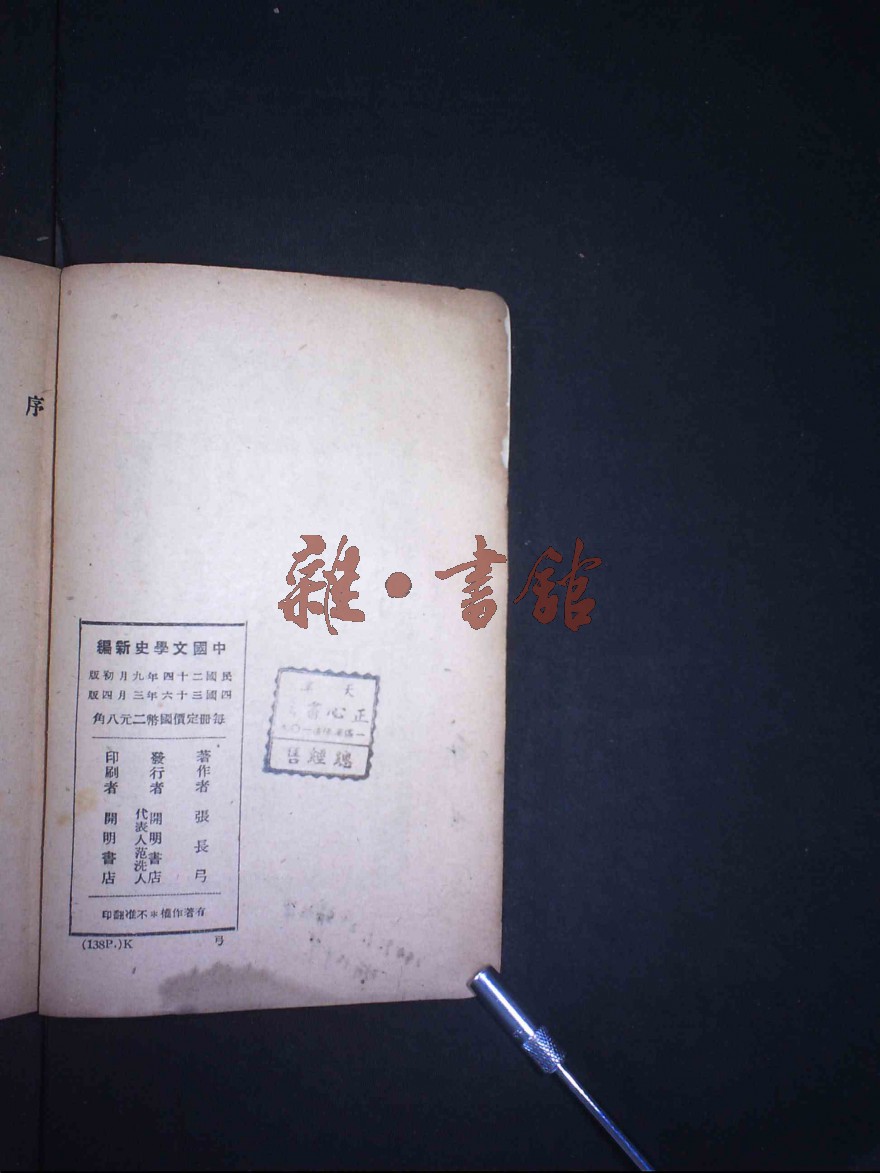 序
雜·書館
中國文學史新編
民國二十四年九月初版
四國三十六年三月四版
每冊定價國幣二元八角
著作者 張長弓
發行者 開明書店
代表人范洗人
印刷者 開明書店
有著作權＊不准翻印
(138P.)K 弓
正心
總經售